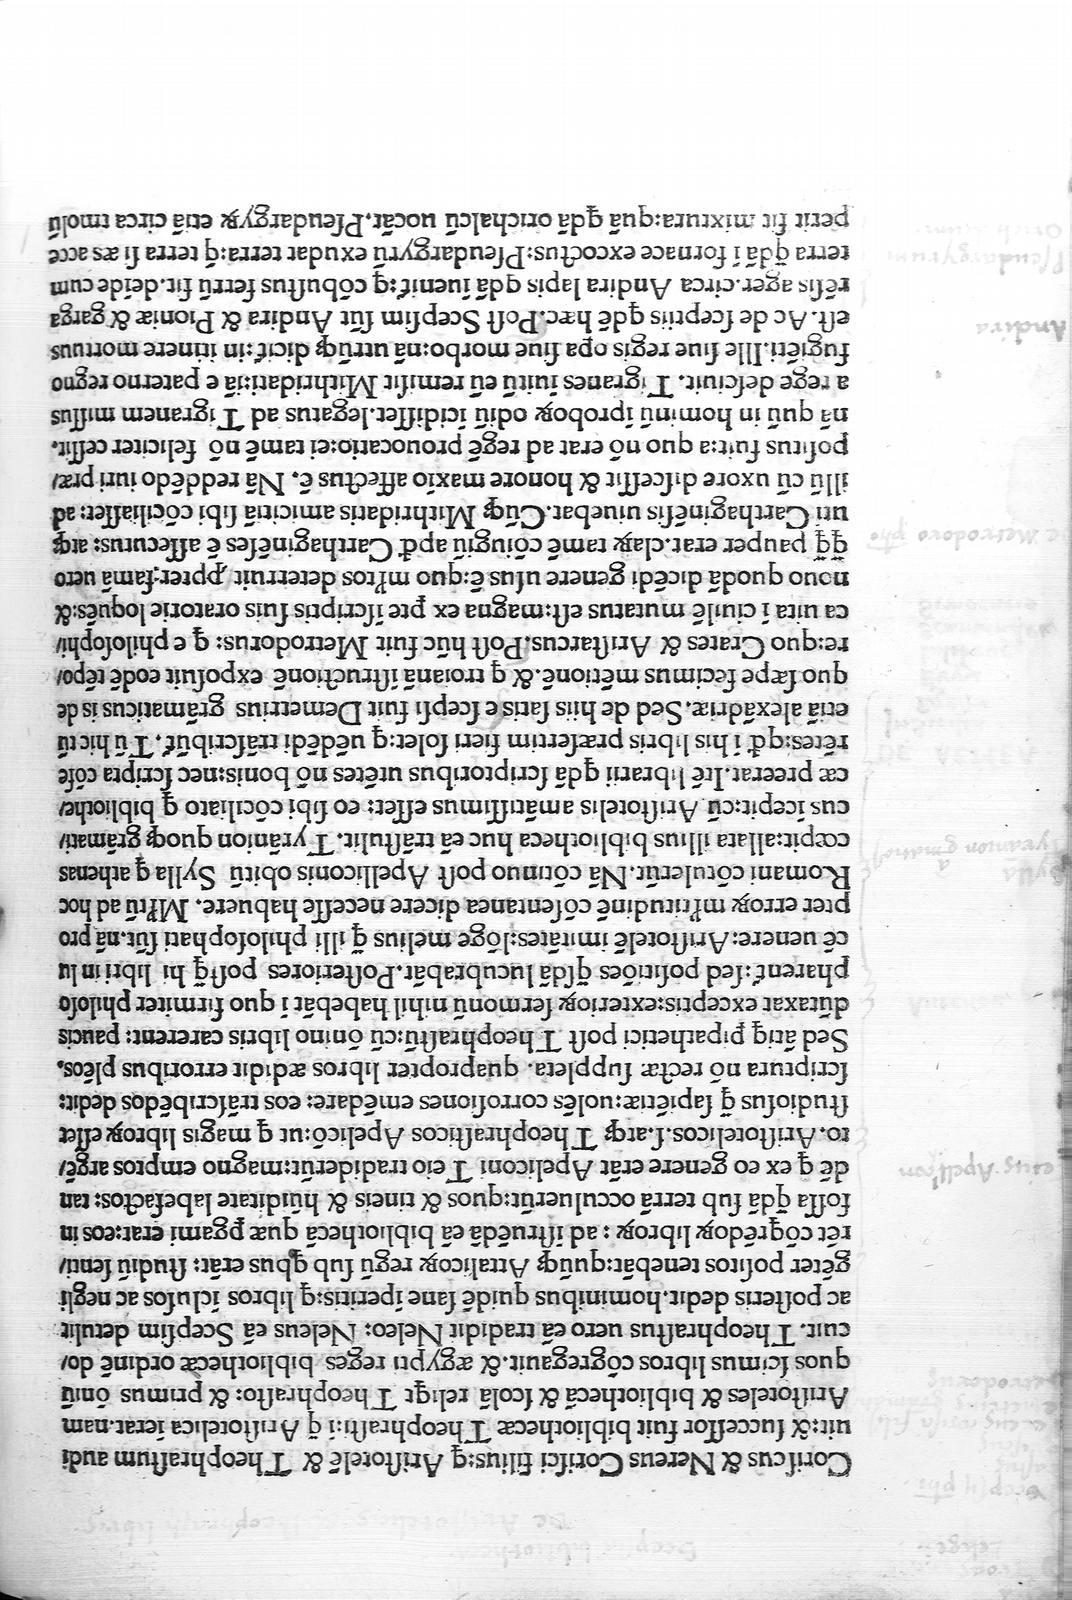 Corifcus & Nereus Corisci filius:q̃ Aristotelē & Theophrastum audi
uit:& successor fuit bibliothecæ Theophrasti:ī q̃ Aristotelica ierat.nam
Aristoteles & bibliothecā & scolā reliqt Theophrasto: & primus ōniū
quos scimus libros cōgregauit.& ægypti reges bibliothecæ ordinē do/
cuit. Theophrastus uero eā tradidit Neleo: Neleus eā Scepsim detulit
ac posteris dedit.hominibus quidē sane īperitis:q̃ libros īclusos ac negli
gēter positos tenebāt:quūq; Attalicoꝝ regū sub qbus erāt: studiū senti/
rēt cōgrēdoꝝ libroꝝ: ad īstruēdā eā bibliothecā quæ ꝑgami erat:eos in
fossa qdā sub terrā occuluerūt:quos & tineis & hūiditate labefactos: tan
dē q̃ ex eo genere erāt Apeliconi Teio tradiderūt:magno emptos argē/
to.Aristotelicos.s.atq; Theophrasticos Apelicō:ut q̃ magis libroꝝ esset
studiosus q̃ sapiētiæ:uolēs corrosiones emēdare: eos trāscribēdos dedit:
scriptura nō rectæ suppleta. quapropter libros ædidit erroribus plēos.
Sed ātiq ꝑipathetici post Theophrastū:cū ōnino libris carerent: paucis
dūtaxat exceptis:exterioꝝ sermonū nihil habebāt ī quo firmiter philoso
pharent̄:sed positiōes qsdā lucubrabāt.Posteriores postq̄ hi libri in lu
cē uenere:Aristotelē imitātes:lōge melius q̄ illi philosophati sūt.nā pro
pter erroꝝ ml̄titudinē cōsentanea dicere necesse habuere. Ml̄tū ad hoc
Romani cōtulerūt.Nā cōtinuo post Apelliconis obitū Sylla q̃ athenas
cœpit:allata illius bibliotheca huc eā trāstulit. Tyrānion quoq; grāmati/
cus īcepit:cū Aristotelis amātissimus esset: eo sibi cōciliato q̃ bibliothe/
cæ preerat.Itē librarii qdā scriptoribus utētes nō bonis:nec scripta cōfe
rētes:qđ ī his libris præsertim fieri solet:q̃ uēdēdi trāscribūt̄. Tū hic tū
etiā alexādriæ.Sed de hiis satis e scepsi fuit Demetrius grāmaticus is de
quo sæpe fecimus mētionē.& q̃ troianā īstructionē exposuit eodē tēpo/
re:quo Crates & Aristarcus.Post hūc fuit Metrodorus: q̃ e philosophi/
ca uita ī ciuilē mutatus est:magna ex pte īscriptis suis oratorie loquēs:&
nouo quodā dicēdi genere usus ē:quo ml̄tos deterruit ꝓpter famā uero
q̄q̄ pauper erat.claꝝ tamē cōiugiū apđ Carthaginēses ē assecutus: atq;
uti Carthaginēsis uiuebat.Cūq; Mithridatis amicitiā sibi cōciliasset: ad
illū cū uxore discessit & honore maxīo affectus ē. Nā reddēdo iuri præ/
positus fuit:a quo nō erat ad regē prouocatio:ei tamē nō feliciter cessit.
nā quū in hominū īproboꝝ odiū īcidisset.legatus ad Tigranem missus
a rege desciuit. Tigranes īuitū eū remisit Mithridati:iā e paterno regno
fugiēti.Ille siue regis opa siue morbo:nā utrūq; dicit̄:in itinere mortuus
est. Ac de sceptiis qdē hæc.Post Scepsim sūt Andira & Pioniæ & garga
rēsis ager.circa Andira lapis qdā īuenit̄:q̃ cōbustus ferrū fit.deīde cum
terra qdā ī fornace excoctus:Pseudargyrū exudat terra:q̃ terra si æs acce
perit fit mixtura:quā qdā orichalcū uocāt.Pseudargyꝝ etiā circa tmolū
Andira